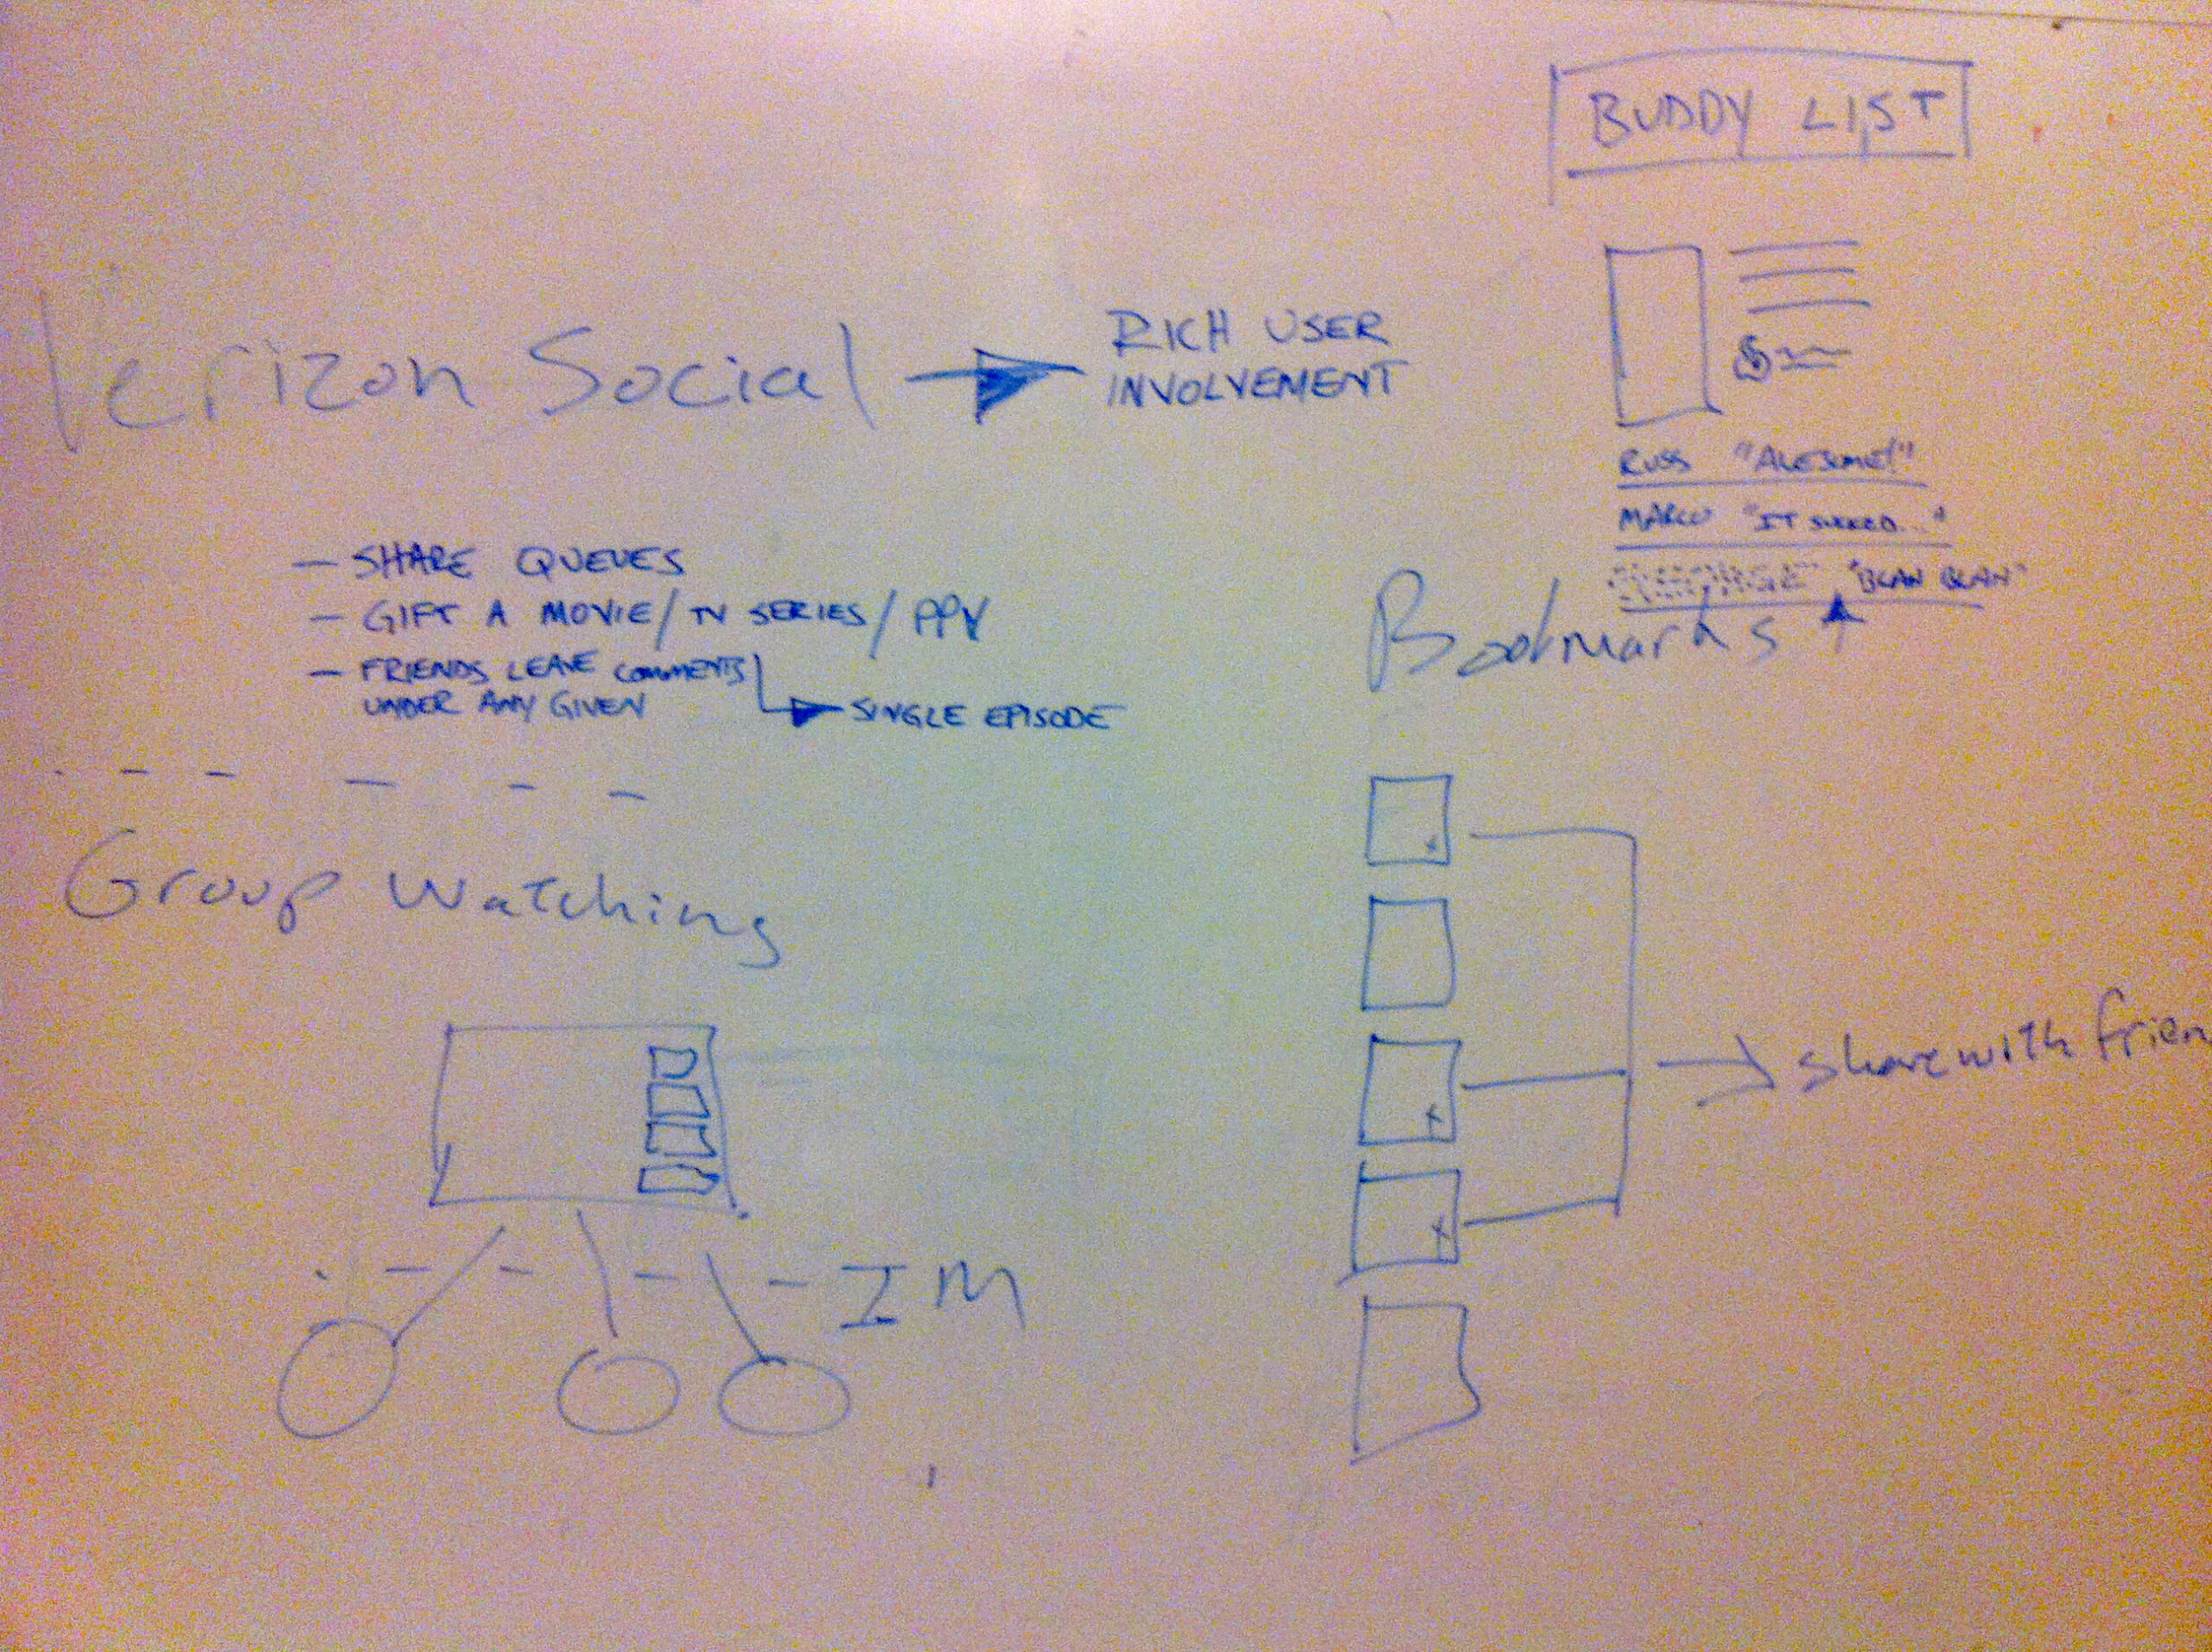 BUDDY LIST
Verizon Social
RICH USER
INVOLVEMENT
RUSS "AWESOME!"
MARCO "IT SUCKED..."
"BLAH BLAH"
- SHARE QUEUES
- GIFT A MOVIE/TV SERIES/PPV
- FRIENDS LEAVE COMMENTS
UNDER ANY GIVEN
SINGLE EPISODE
Bookmarks
Group Watching
share with frien
IM